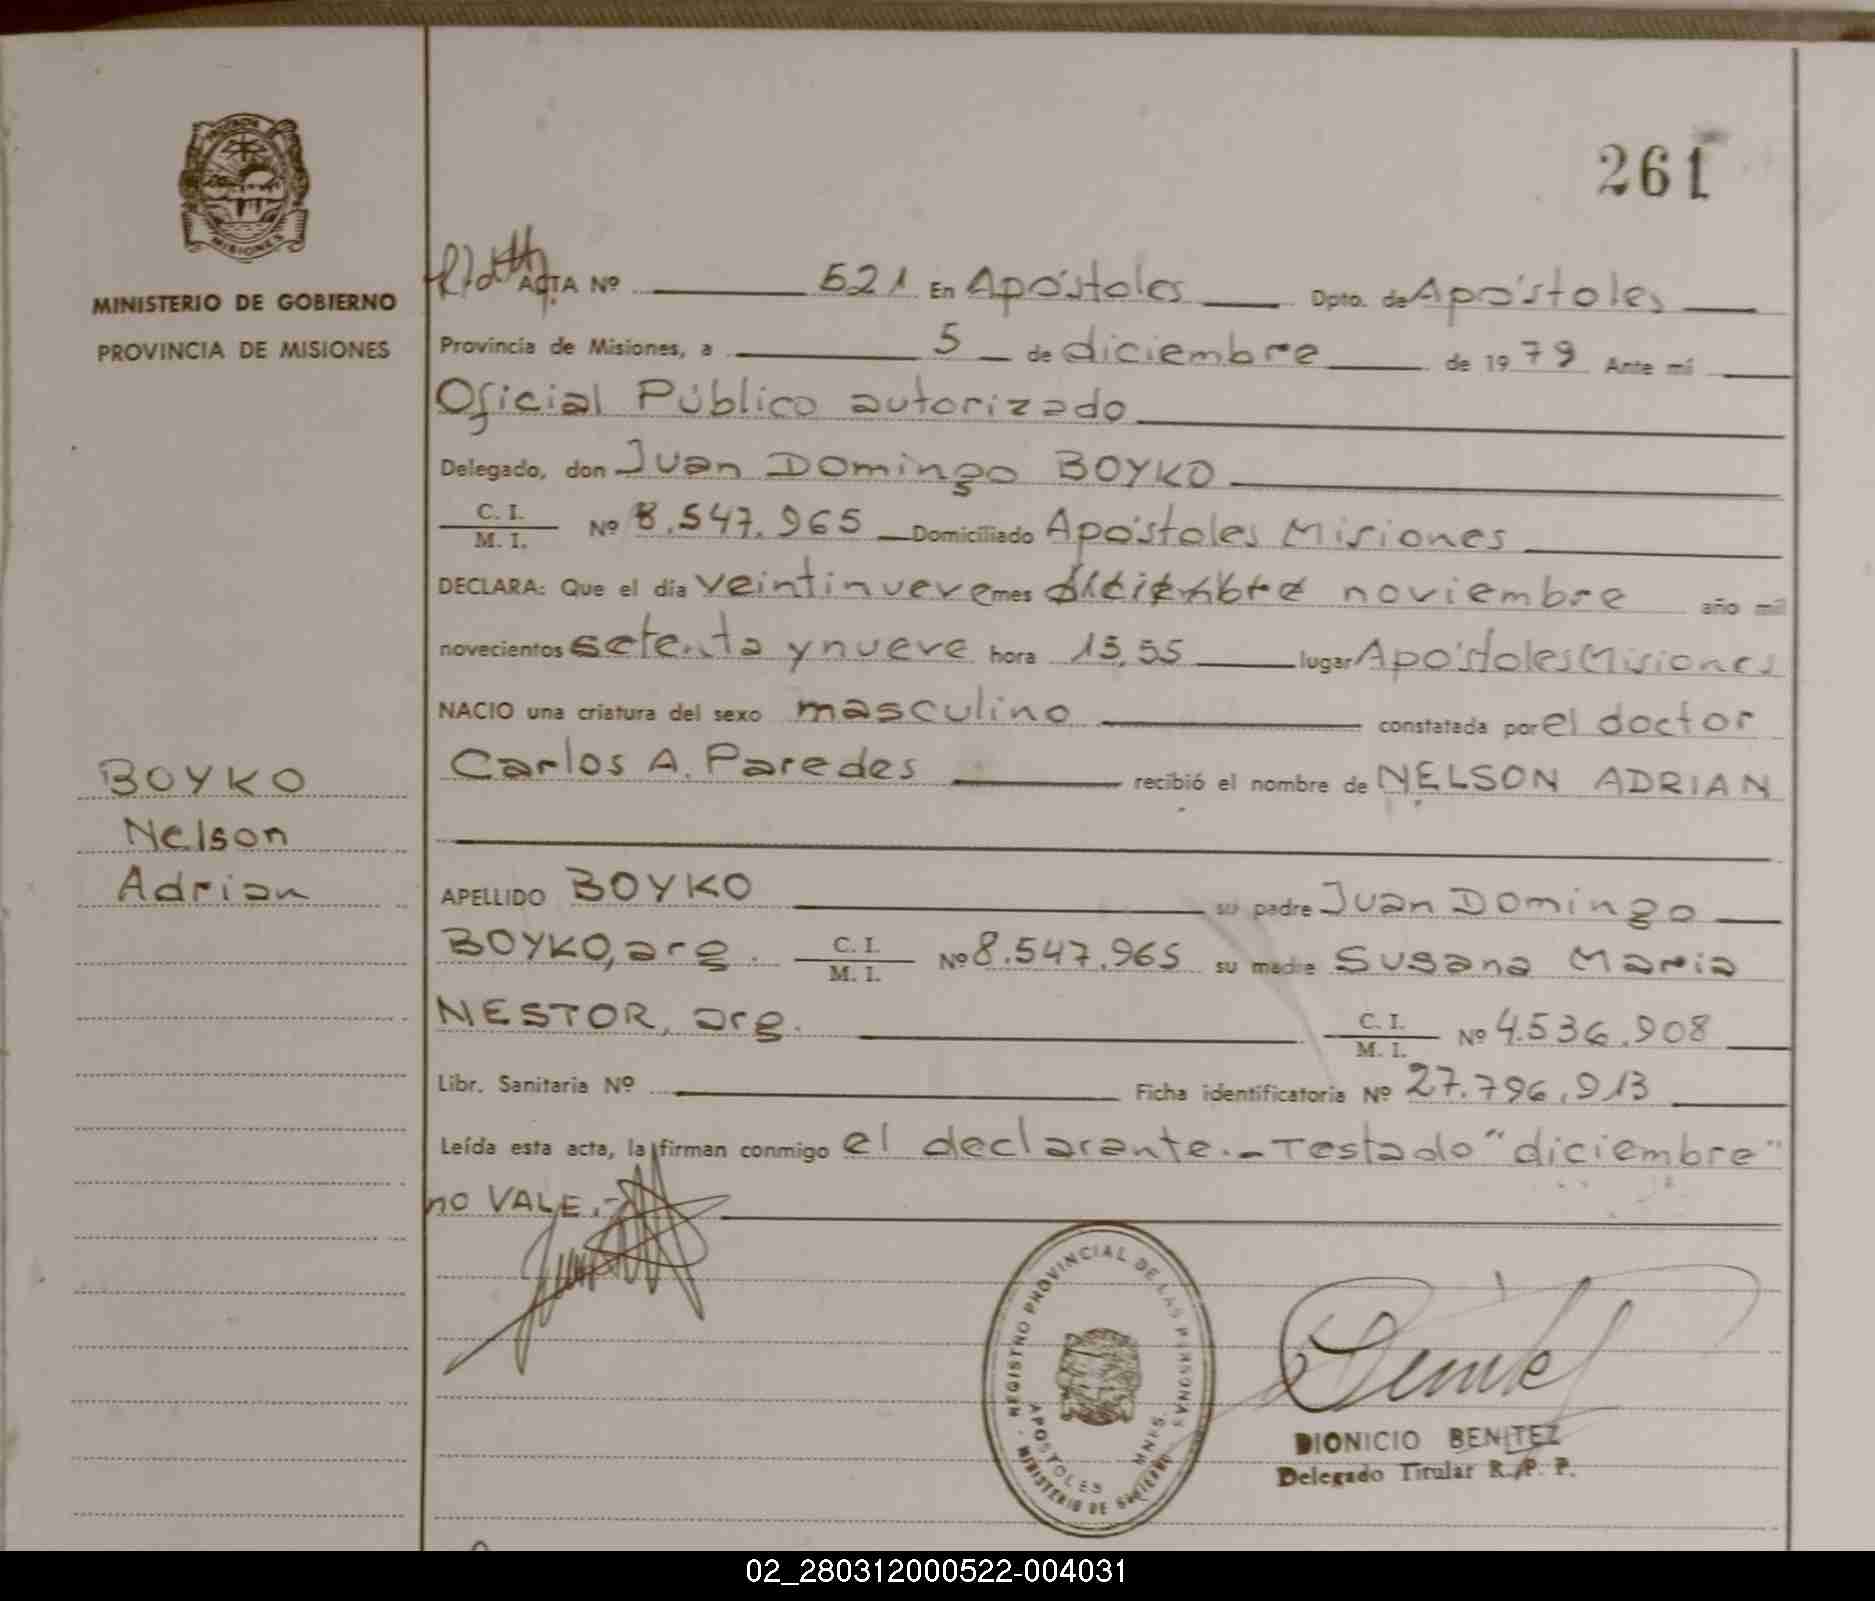 261
MINISTERIO DE GOBIERNO
PROVINCIA DE MISIONES
ACTA Nº 521 En Apóstoles Dpto. de Apóstoles
Provincia de Misiones, a 5 de diciembre de 1979 Ante mí
Oficial Público autorizado
Delegado, don Juan Domingo BOYKO
C. I.
M. I. Nº 8.547.965 Domiciliado Apóstoles Misiones
DECLARA: Que el día veintinueve mes diciembre noviembre año mil
novecientos setenta y nueve hora 15,55 lugar Apóstoles Misiones
NACIO una criatura del sexo masculino constatada por el doctor
Carlos A. Paredes recibió el nombre de NELSON ADRIAN
BOYKO
Nelson
Adrian
APELLIDO BOYKO su padre Juan Domingo
BOYKO, arg. C. I. M. I. Nº 8.547.965 su madre Susana Maria
NESTOR, arg. C. I. M. I. Nº 4.536.908
Libr. Sanitaria Nº Ficha identificatoria Nº 27.796.913
Leída esta acta, la firman conmigo el declarante.- Testado "diciembre"
no VALE.-
REGISTRO PROVINCIAL DE LAS PERSONAS
APOSTOLES MNES.
MINISTERIO DE GOBIERNO
DIONICIO BENITEZ
Delegado Titular R. P. P.
02_280312000522-004031